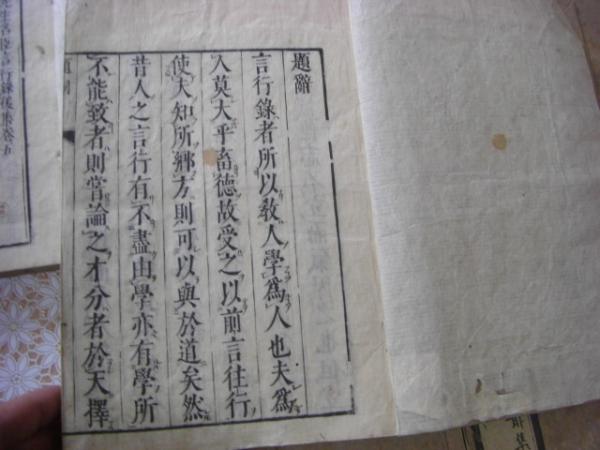 題辭
言行錄者所以敎人學爲人也夫爲
人莫大乎畜德故受之以前言往行
使夫知所鄕方則可以與於道矣然
昔人之言行有不盡由學亦有學所
不能致者則嘗論之才分者於天擇
先生名臣言行錄後集卷五